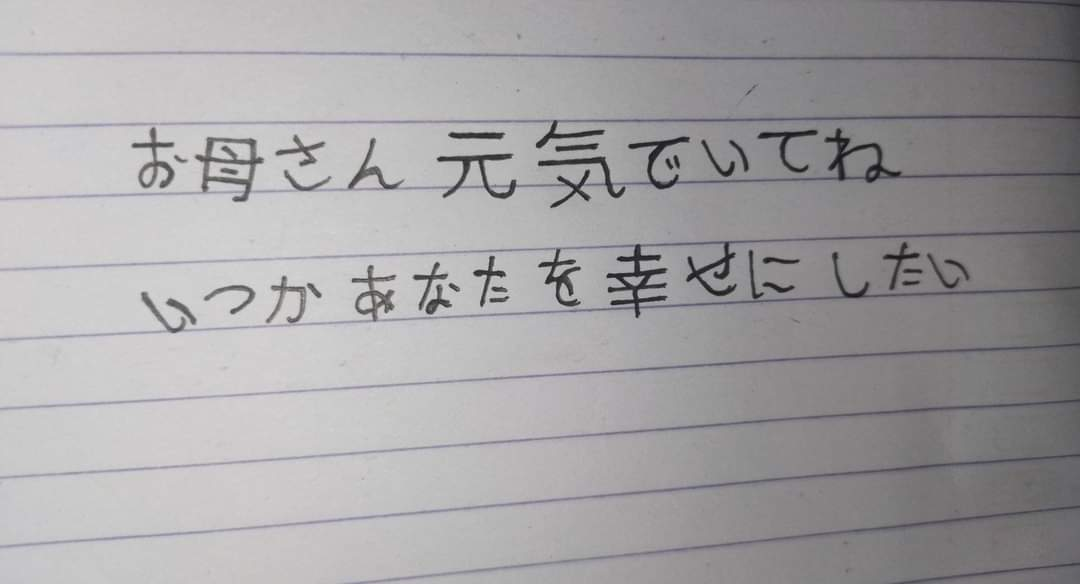 お母さん 元気でいてね
いつか あなたを 幸せに したい